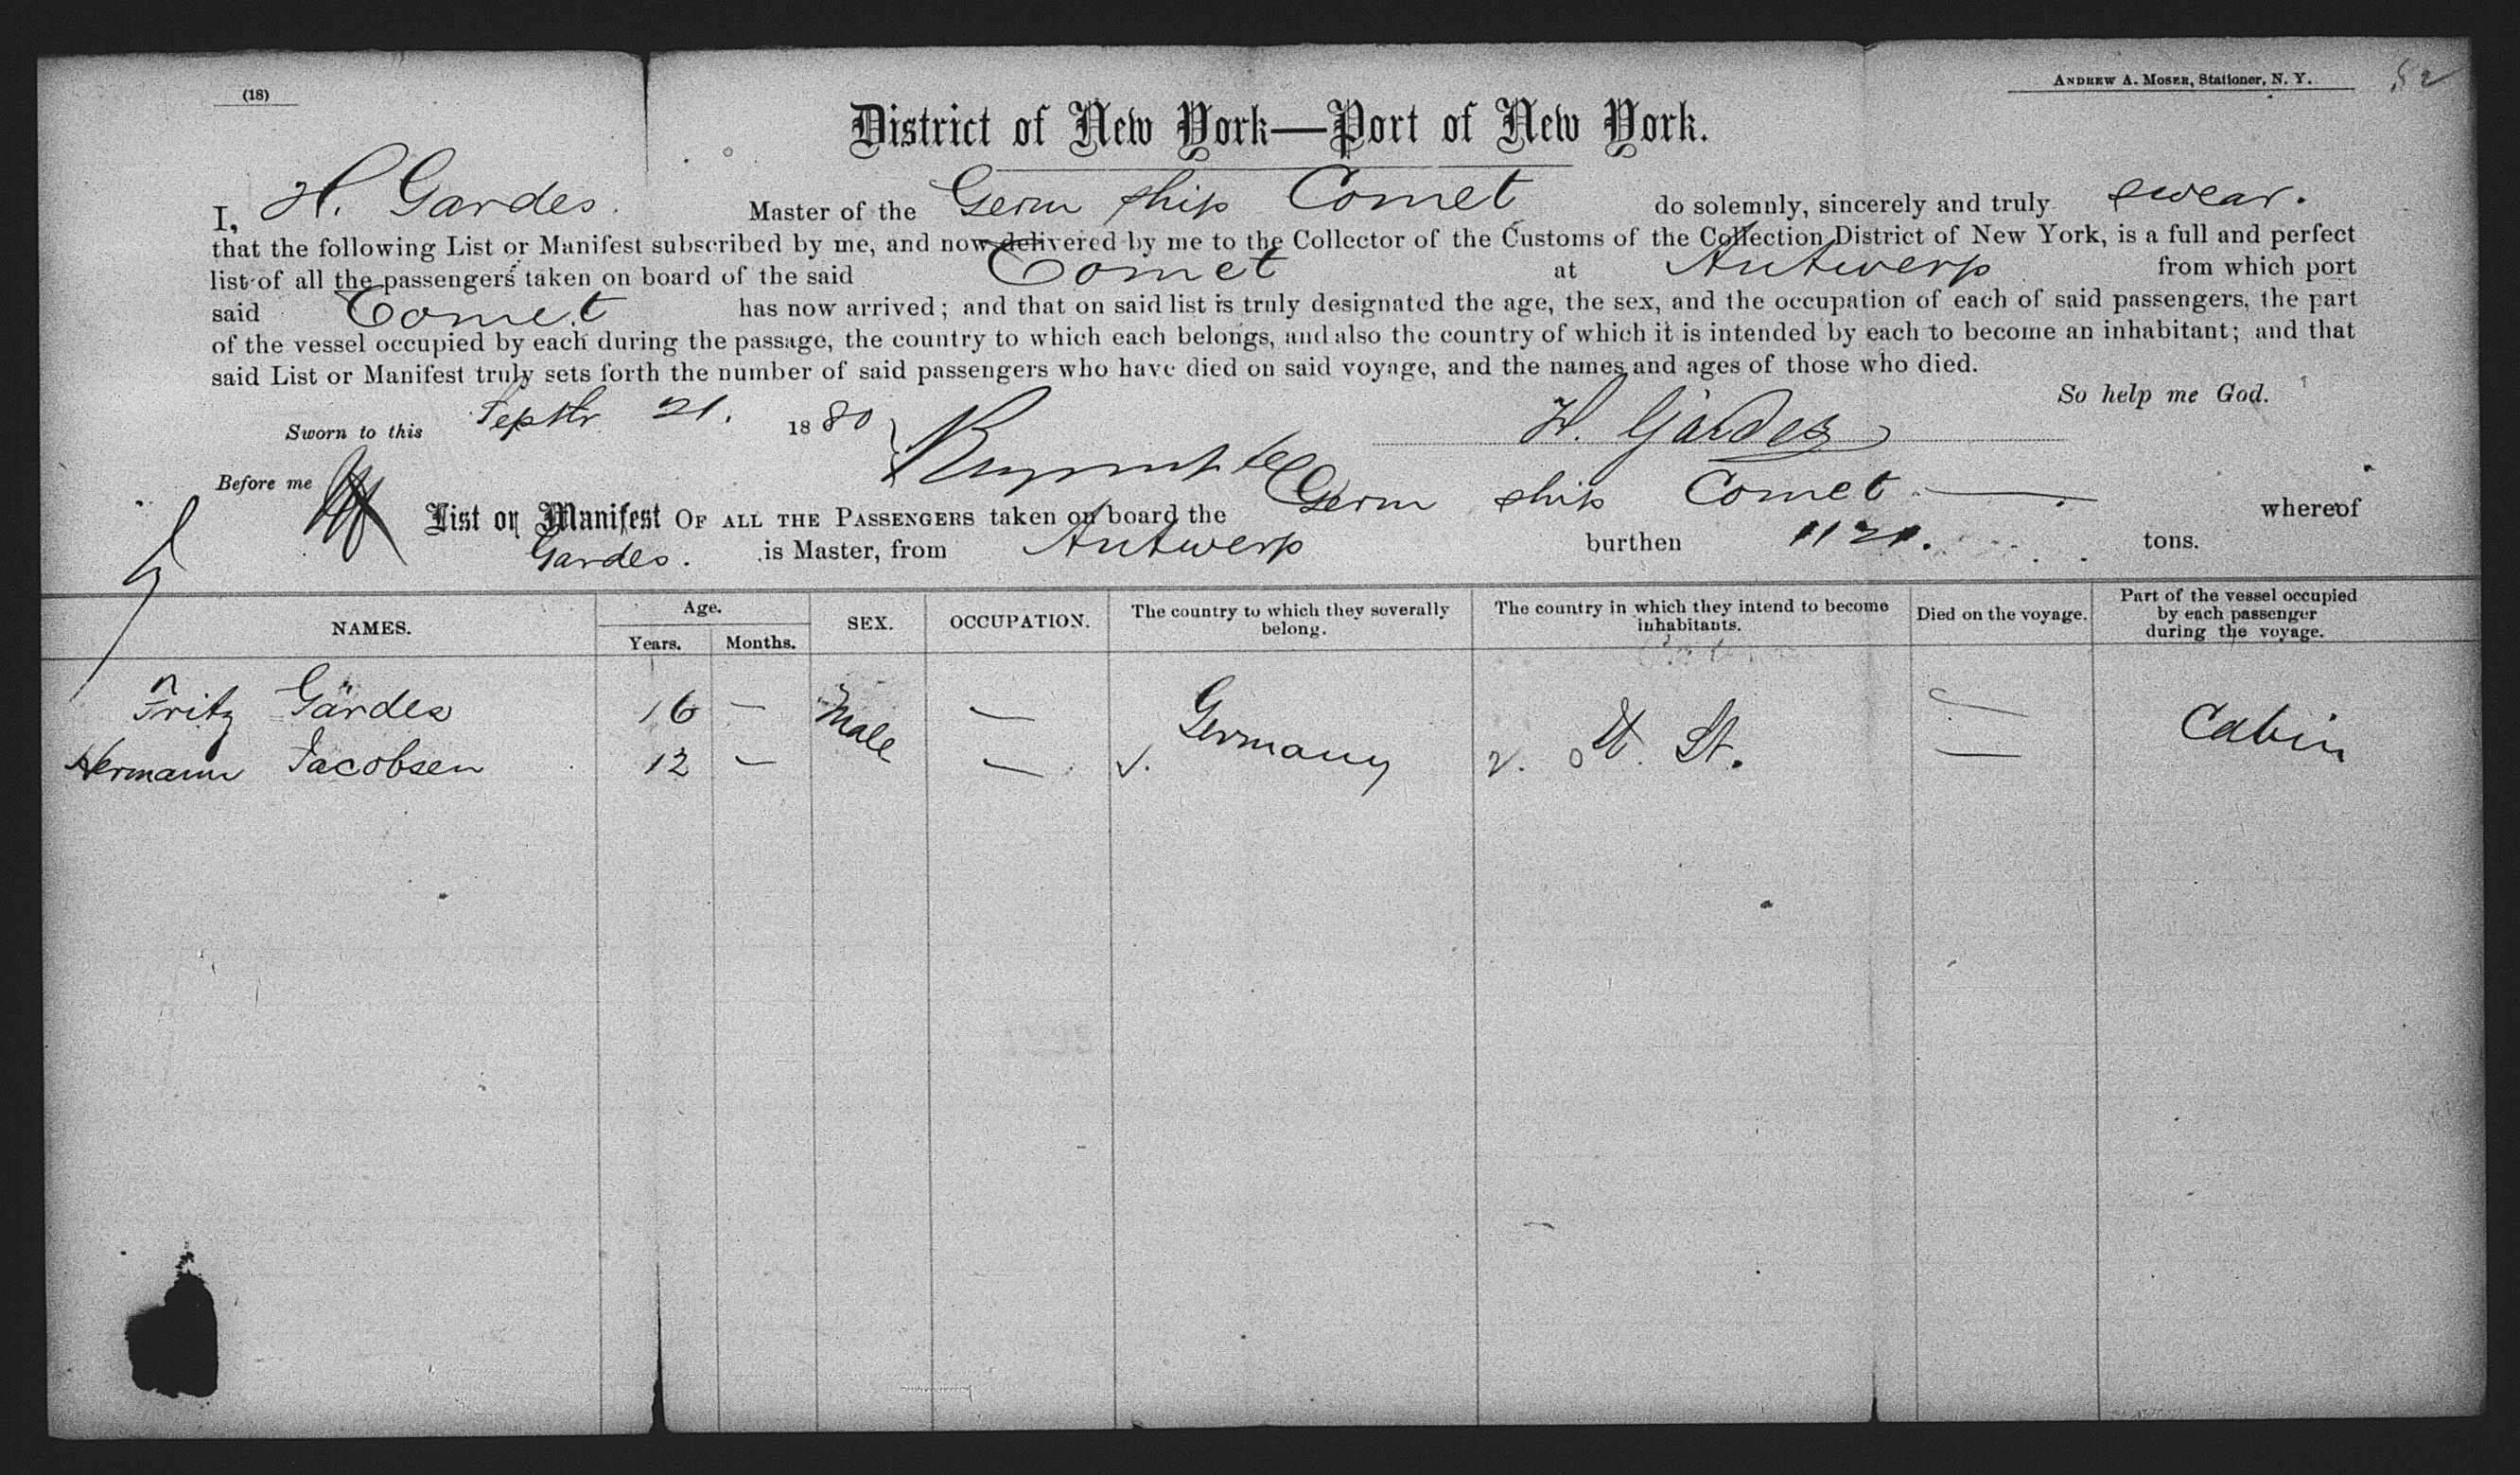 (18)
ANDREW A. MOSER, Stationer, N. Y.
52
District of New York—Port of New York.
I, H. Gardes. Master of the Germ ship Comet do solemnly, sincerely and truly swear.
that the following List or Manifest subscribed by me, and now delivered by me to the Collector of the Customs of the Collection District of New York, is a full and perfect
list of all the passengers taken on board of the said Comet at Antwerp from which port
said Comet has now arrived; and that on said list is truly designated the age, the sex, and the occupation of each of said passengers, the part
of the vessel occupied by each during the passage, the country to which each belongs, and also the country of which it is intended by each to become an inhabitant; and that
said List or Manifest truly sets forth the number of said passengers who have died on said voyage, and the names and ages of those who died.
So help me God.
Sworn to this Septbr 21. 1880 H. Gärdes
Before me
List or Manifest OF ALL THE PASSENGERS taken on board the Germ ship Comet — whereof
Gardes. is Master, from Antwerp burthen 1121. tons.
NAMES. Age. Years. Months. SEX. OCCUPATION. The country to which they severally belong. The country in which they intend to become inhabitants. Died on the voyage. Part of the vessel occupied by each passenger during the voyage.
Fritz Gärdes 16 — Male — Germany U. St. — Cabin
Hermann Jacobsen 12 — — —